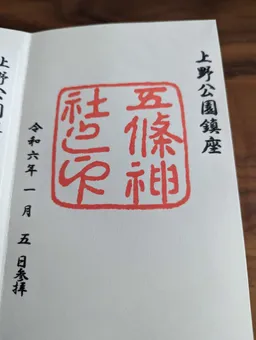 上野公園鎮座
五條神
社之印
令和六年一月五日参拝
上野公園鎮座